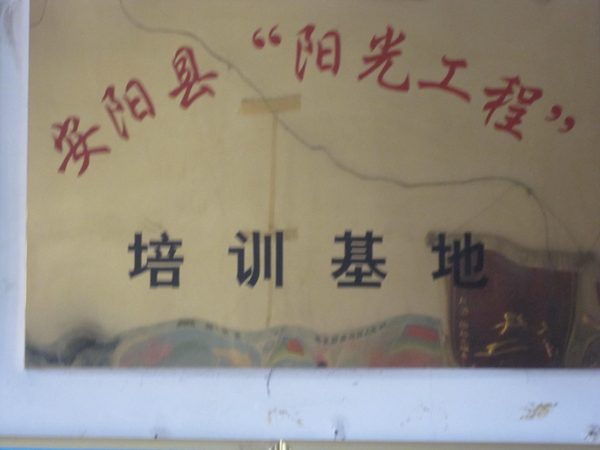 安阳县“阳光工程”
培训基地